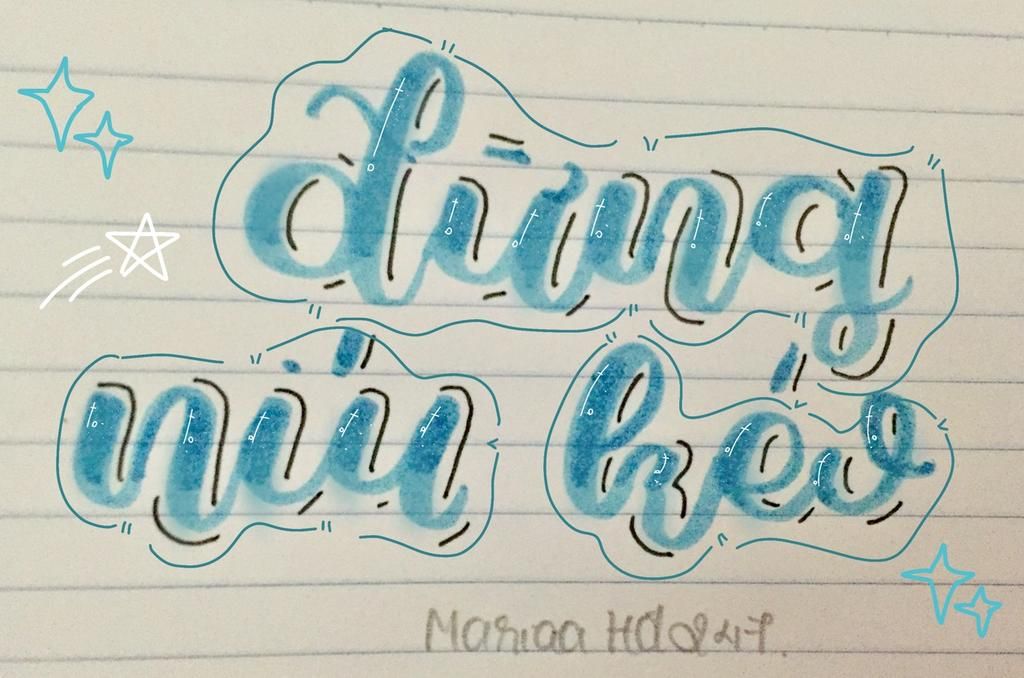 đừng
níu kéo
Mariaa